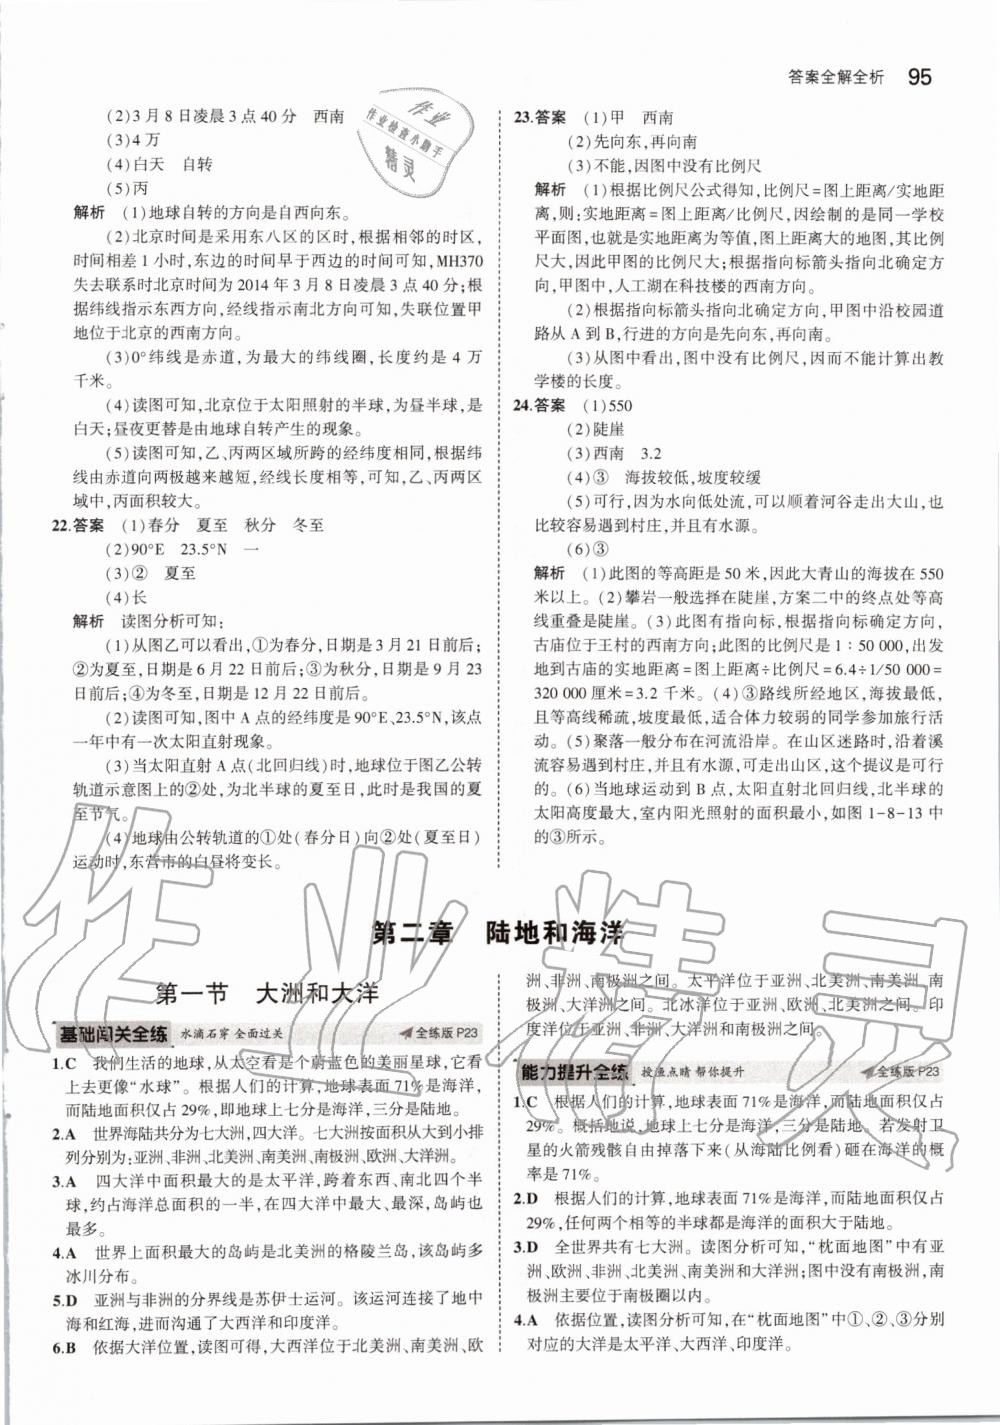 答案全解全析 95
(2)3月8日凌晨3点40分 西南
(3)4万
(4)白天 自转
(5)丙
解析 (1)地球自转的方向是自西向东。
(2)北京时间是采用东八区的区时,根据相邻的时区,
时间相差1小时,东边的时间早于西边的时间可知,MH370
失去联系时北京时间为2014年3月8日凌晨3点40分;根
据纬线指示东西方向,经线指示南北方向可知,失联位置甲
地位于北京的西南方向。
(3)0°纬线是赤道,为最大的纬线圈,长度约是4万
千米。
(4)读图可知,北京位于太阳照射的半球,为昼半球,是
白天;昼夜更替是由地球自转产生的现象。
(5)读图可知,乙、丙两区域所跨的经纬度相同,根据纬
线由赤道向两极越来越短,经线长度相等,可知,乙、丙两区
域中,丙面积较大。
22.答案 (1)春分 夏至 秋分 冬至
(2)90°E 23.5°N 一
(3)② 夏至
(4)长
解析 读图分析可知:
(1)从图乙可以看出,①为春分,日期是3月21日前后;
②为夏至,日期是6月22日前后;③为秋分,日期是9月23
日前后;④为冬至,日期是12月22日前后。
(2)读图可知,图中A点的经纬度是90°E、23.5°N,该点
一年中有一次太阳直射现象。
(3)当太阳直射A点(北回归线)时,地球位于图乙公转
轨道示意图上的②处,为北半球的夏至日,此时是我国的夏
至节气。
(4)地球由公转轨道的①处(春分日)向②处(夏至日)
运动时,东营市的白昼将变长。
23.答案 (1)甲 西南
(2)先向东,再向南
(3)不能,因图中没有比例尺
解析 (1)根据比例尺公式得知,比例尺=图上距离/实地距
离,则:实地距离=图上距离/比例尺,因绘制的是同一学校
平面图,也就是实地距离为等值,图上距离大的地图,其比例
尺大,因此甲图的比例尺大。根据指向标箭头指向北确定方
向,甲图中,人工湖在科技楼的西南方向。
(2)根据指向标箭头指向北确定方向,甲图中沿校园道
路从A到B,行进的方向是先向东,再向南。
(3)从图中看出,图中没有比例尺,因而不能计算出教
学楼的长度。
24.答案 (1)550
(2)陡崖
(3)西南 3.2
(4)③ 海拔较低,坡度较缓
(5)可行,因为水向低处流,可以顺着河谷走出大山,也
比较容易遇到村庄,并且有水源。
(6)③
解析 (1)此图的等高距是50米,因此大青山的海拔在550
米以上。(2)攀岩一般选择在陡崖,方案二中的终点处等高
线重叠是陡崖。(3)此图有指向标,根据指向标确定方向,
古庙位于王村的西南方向;此图的比例尺是1∶50 000,出发
地到古庙的实地距离=图上距离÷比例尺=6.4÷1/50 000=
320 000厘米=3.2千米。(4)③路线所经地区,海拔最低,
且等高线稀疏,坡度最低,适合体力较弱的同学参加旅行活
动。(5)聚落一般分布在河流沿岸。在山区迷路时,沿着溪
流容易遇到村庄,并且有水源,可走出山区,这个提议是可行
的。(6)当地球运动到B点,直射北回归线,北半球的
太阳高度最大,室内阳光照射的面积最小,如图1-8-13中
的③所示。
第二章 陆地和海洋
第一节 大洲和大洋
基础闯关全练 水滴石穿 全面过关 全练版P23
1.C 我们生活的地球,从太空看是个蔚蓝色的美丽星球,它看
上去更像“水球”。根据人们的计算,地球表面71%是海洋,
而陆地面积仅占29%,即地球上七分是海洋,三分是陆地。
2.A 世界海陆共分为七大洲,四大洋。七大洲按面积从大到小排
列分别为:亚洲、非洲、北美洲、南美洲、南极洲、欧洲、大洋洲。
3.A 四大洋中面积最大的是太平洋,跨着东西、南北四个半
球,约占海洋总面积的一半,在四大洋中最大、最深、岛屿也
最多。
4.A 世界上面积最大的岛屿是北美洲的格陵兰岛,该岛屿多
冰川分布。
5.D 亚洲与非洲的分界线是苏伊士运河。该运河连接了地中
海和红海,进而沟通了大西洋和印度洋。
6.B 依据大洋位置,读图可得,大西洋位于北美洲、南美洲、欧
洲、非洲、南极洲之间。太平洋位于亚洲、北美洲、南美洲、南
极洲、大洋洲之间。北冰洋位于亚洲、欧洲、北美洲之间。印
度洋位于亚洲、非洲、大洋洲和南极洲之间。
能力提升全练 授渔点睛 帮你提升 全练版P23
1.C 根据人们的计算,地球表面71%是海洋,而陆地面积仅占
29%。概括地说,地球上七分是海洋,三分是陆地。若发射卫
星的火箭残骸自由掉落下来(从海陆比例看)砸在海洋的概
率是71%。
2.D 根据人们的计算,地球表面71%是海洋,而陆地面积仅占
29%,任何两个相等的半球都是海洋的面积大于陆地。
3.D 全世界共有七大洲。读图分析可知,“枕面地图”中有亚
洲、欧洲、非洲、北美洲、南美洲和大洋洲;图中没有南极洲,南
极洲主要位于南极圈以内。
4.A 依据位置,读图分析可知,在“枕面地图”中①、②、③分别
对应的大洋是太平洋、大西洋、印度洋。
作业
作业检查小助手
精灵
作业精灵